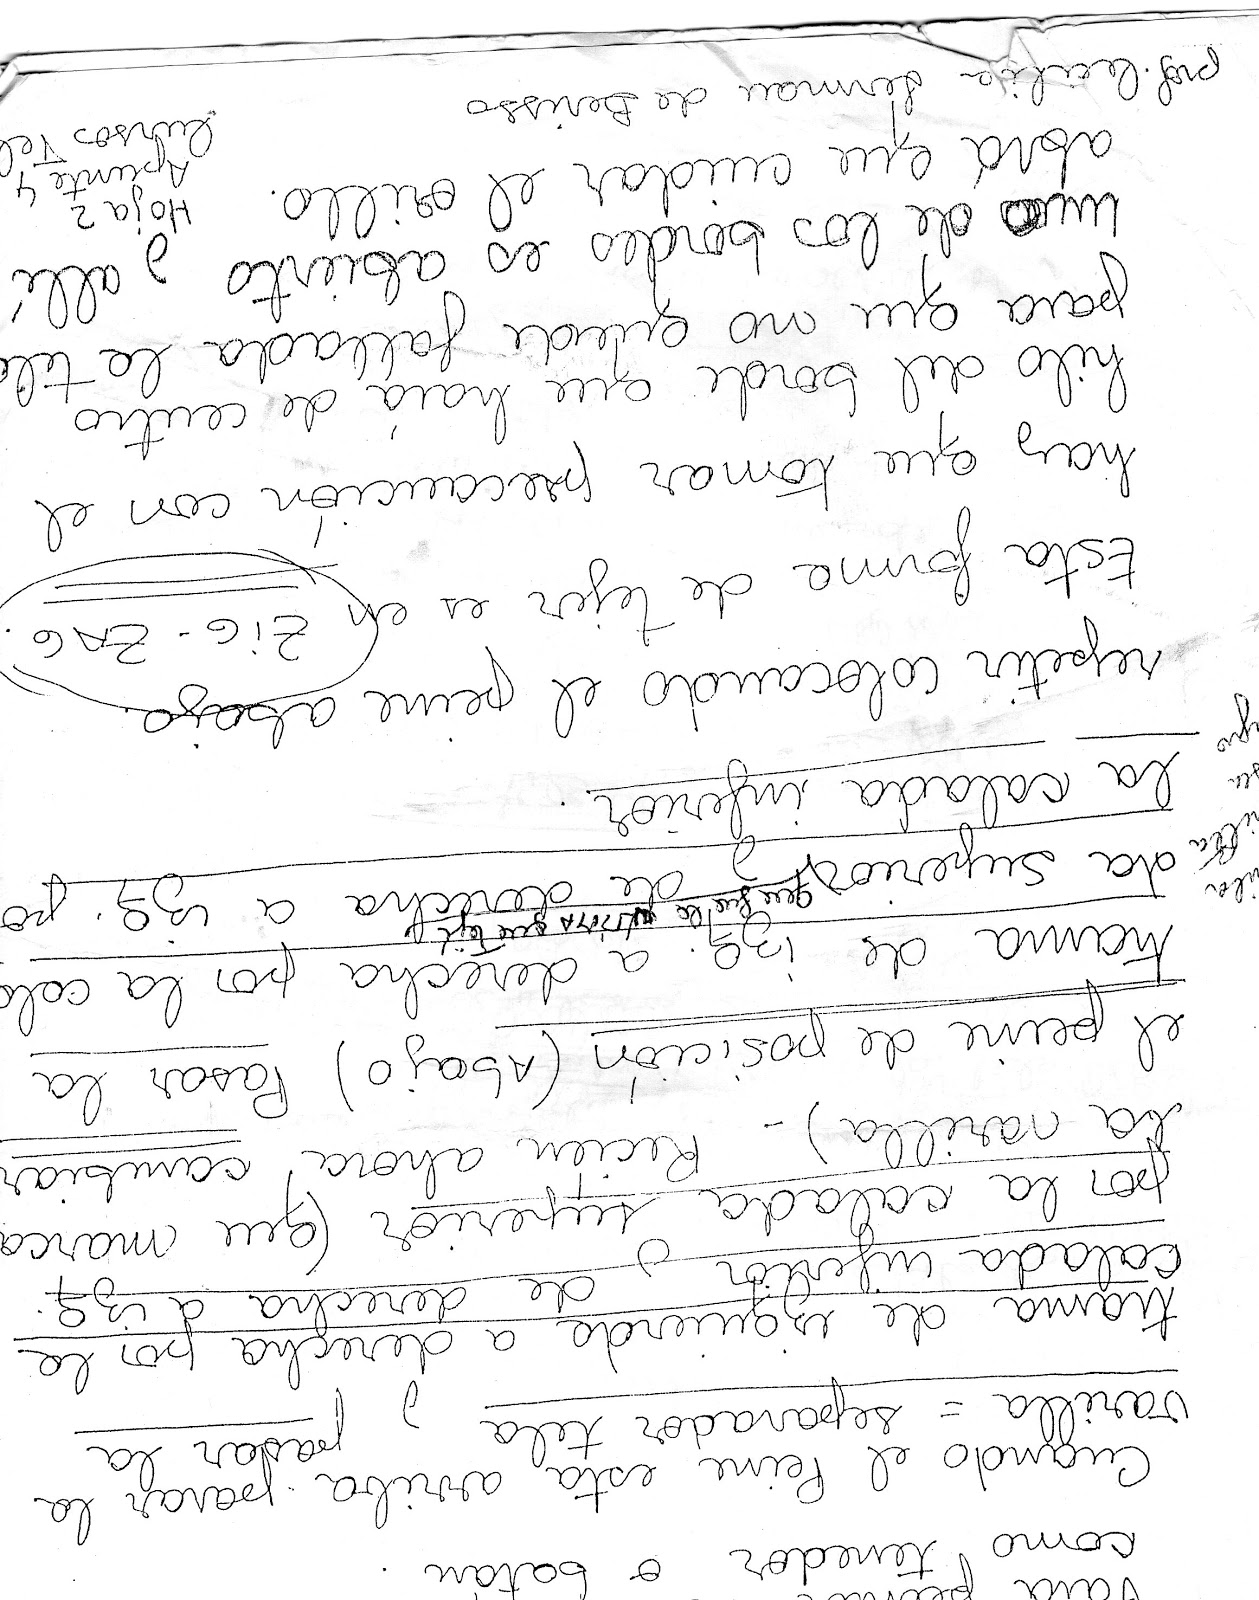 para peinar
como tenedor o batan.
Cuando el Peine esta arriba parar la
varilla = separador tela y pasar la
trama de izquierda a derecha por la
calada inferior y de derecha a izq.
por la calada superior (que marca
la varilla) - Recien ahora, cambiar
el peine de posición (Abajo) Pasar la
trama de izq. a derecha por la cala
da superior y de derecha a izq. po
la calada inferior.
repetir colocando el peine abajo.
Esta forma de tejer es en ZIG-ZAG.
hay que tomar precaución con el
hilo del borde que hará de centro
para que no quede fallada la tela
uno de los bordes es abierto y allí
abrá que cuidar el orillo.
Hoja 2
Apunte 4
Cursos Tel
prof. Cecilia German de Berisso